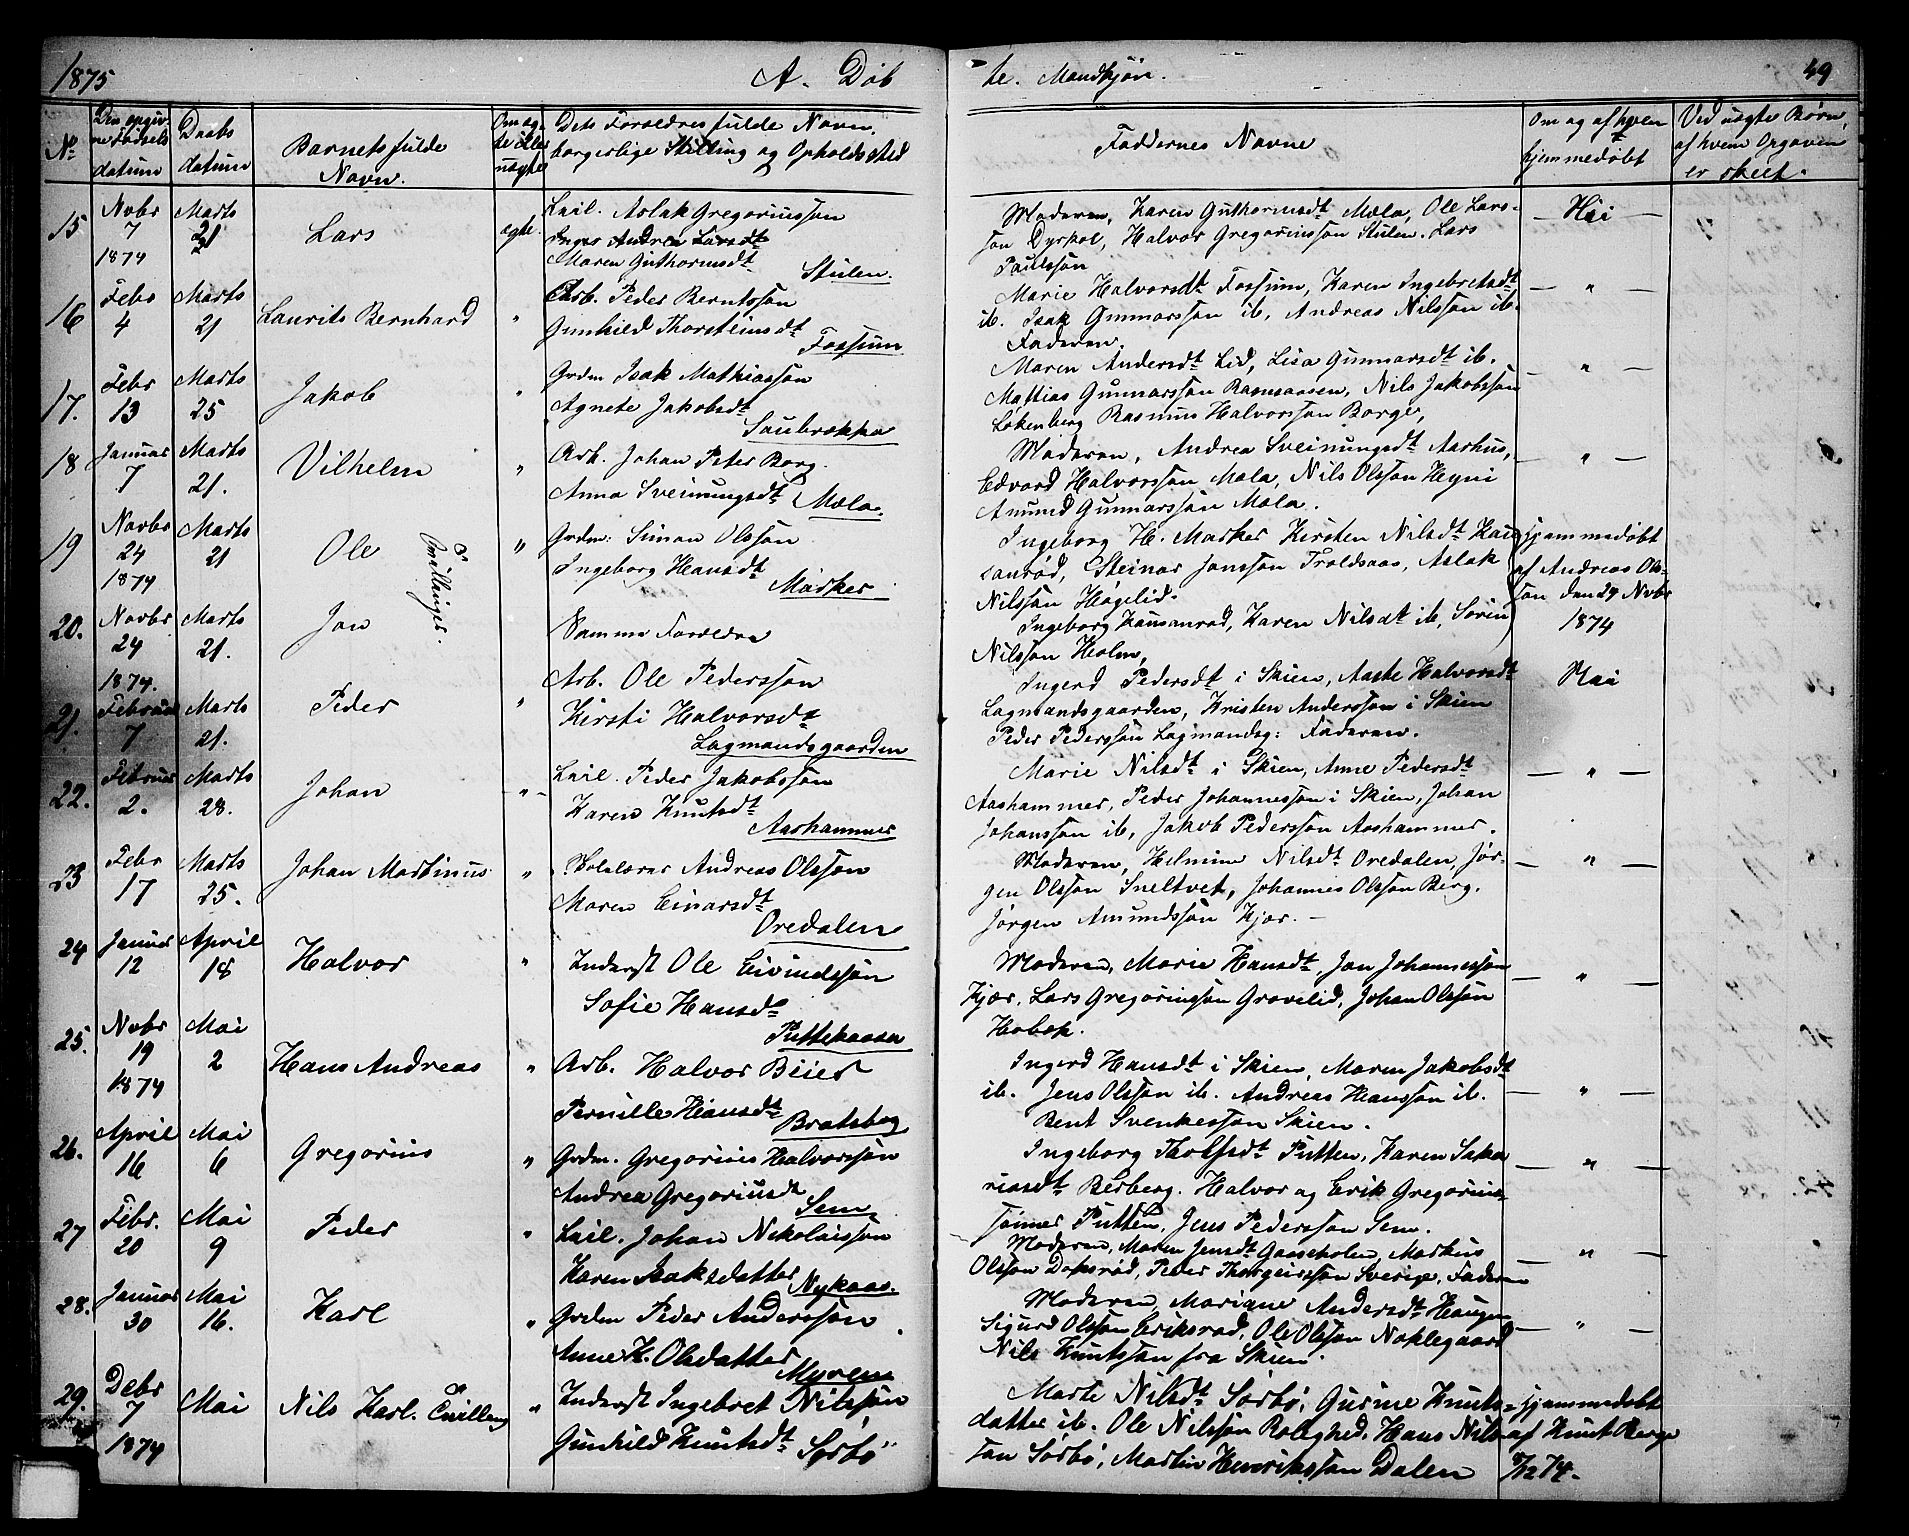 1875 A. Døb te. Mandkjøn. 49
No Den opgivne Fødsels datum Daabs datum Barnets fulde Navn. Om ægte eller uægte Dets Forældres fulde Navn, borgerlige Stilling og Opholdssted Faddernes Navne Om og af hvem hjemmedøbt Ved uægte Børn, af hvem Opgaven er skeet.
15 Novbr 7 1874 Marts 21 Lars ægte. Leil. Aslak Gregoriussøn
Inger Andrea Larsdt
Maren Guthormsdt Stulen.
Moderen, Karen Guthormsdt Mæla, Ole Lars-
søn Dyrkol, Halvor Gregoriussøn Stulen. Lars
Paulssøn
— Nei —
16 Febr 4 Marts 21 Laurits Bernhard " Arb. Peder Berntssøn
Gunhild Thorsteinsdt
Fossum.
Marie Halvorsdt Fossum, Karen Ingebretsdt
ib. Isak Gunnarssøn ib, Andreas Nilssøn ib.
Faderen.
— " —
17. Febr 13 Marts 25 Jakob " Grdm Isak Mathiassøn
Agnete Jakobsdt
Saubrekka
Maren Andersdt Lid, Lisa Gunnarsdt ib.
Mattias Gunnarssøn Rasmaasen, Nils Jakobssøn
Løkenberg Rasmus Halvorssøn Borge,
— " —
18 Januar 7 Marts 21. Vilhelm " Arb. Johan Peter Borg.
Anna Sveinungsdt Mæla.
Moderen, Andrea Sveinungsdt Aarhus,
Edvard Halvorssøn Mæla, Nils Olssøn Heyni
Amund Gunnarssøn Mæla.
— " —
19 Novbr 24 1874 Marts 21 Ole Tvillinger. " Grdm: Simon Olssøn
Ingeborg Hansdt
Marker
Ingeborg H. Marker Kirsten Nilsdt Kau
sanrød, Steinar Janssøn Troldsaas, Aslak
Nilssøn Høgelid.
hjemmedøbt
af Andreas Ols-
søn den 29 Novbr
1874
20. Novbr 24 1874. Marts 21. Jan Samme Forældre
Ingeborg Kausanrød, Karen Nilsdt ib, Søren
Nilssøn Holm,
21. Februar 7 Marts 21. Peder " Arb. Ole Pederssøn
Kirsti Halvorsdt
Lagmandsgaarden
Ingerd Pedersdt i Skien, Aaste Halvorsdt
Lagmandsgaarden, Kristen Anderssøn i Skien
Peder Pederssøn Lagmandsg: Faderen.
Nei
22. Februar 2. Marts 28. Johan " Leil. Peder Jakobssøn
Karen Knutsdt
Aashammer
Marie Nilsdt i Skien, Anne Pedersdt
Aashammer, Peder Johannessøn i Skien, Johan
Johanssøn ib, Jakob Pederssøn Aashammer.
— " —
23 Febr 17 Marts 25. Johan Martinus " Skolelærer Andreas Olssøn
Maren Einarsdt
Oredalen
Moderen, Helmine Nilsdt Oredalen, Jør-
gen Olssøn Sneltvet, Johannes Olssøn Berg.
Jørgen Amundssøn Kjær. —
— " —
24 Januar 12 April 18 Halvor " Inderst Ole Eivindssøn
Sofie Hansdt
Puttekaasa
Moderen, Marie Hansdt, Jan Johannessøn
Kjær, Lars Gregoriussøn Gravlid, Johan Olssøn
Hobæk.
— " —
25. Novbr 19 1874 Mai 2 Hans Andreas " Arb. Halvor Beier
Pernille Hansdt
Bratsberg
Ingerd Hansdt i Skien, Maren Jakobsdt
ib. Jens Olssøn ib. Andreas Hanssøn ib.
Bent Svenkessøn Skien.
— " —
26. April 16 Mai 6 Gregorius " Grdm. Gregorius Halvorssøn
Andrea Gregoriusdt
Sem
Ingeborg Tholfsdt Putten, Karen Saka
riasdt Berberg. Halvor og Erik Gregorius-
sønner Putten, Jens Pederssøn Sem.
— " —
27 Febr. 20 Mai 9 Peder " Leil. Johan Nikolaissøn
Karen Isaksdatter Nykaas.
Moderen, Maren Jensdt Gaaseholm, Markus
Olssøn Doksrød, Peder Thorgeirssøn Sverige. Faderen
— " —
28. Januar 30 Mai 16. Karl " Grdm Peder Anderssøn
Anne K. Olsdatter
Myren
Moderen, Mariane Andersdt Haugen
Sigurd Olssøn Eriksrød, Ole Olssøn Noklegaard
Nils Knutssøn fra Skien.
— " —
29. Debr 7 1874 Mai Nils Karl. Tvilling " Inderst Ingebret Nilssøn
Gunhild Knutsdt Sørbø
Marte Nilsdt Sørbø, Gurine Knuts-
datter ib. Ole Nilssøn Rolighed, Hans Nils
søn Sørbø, Martin Henrikssøn Dalen
hjemmedøbt
af Knut Berge
8/12 74.